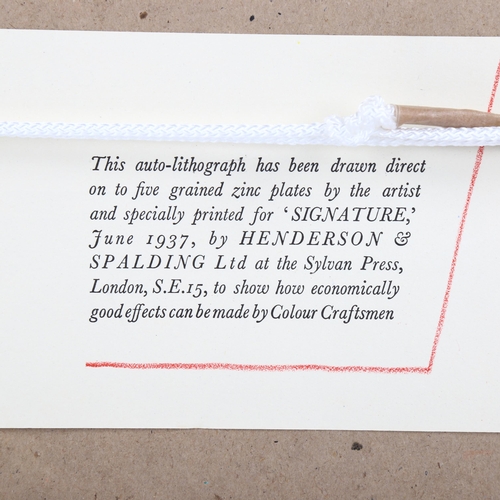 This auto-lithograph has been drawn direct
on to five grained zinc plates by the artist
and specially printed for ‘SIGNATURE,’
June 1937, by HENDERSON &
SPALDING Ltd at the Sylvan Press,
London, S.E.15, to show how economically
good effects can be made by Colour Craftsmen